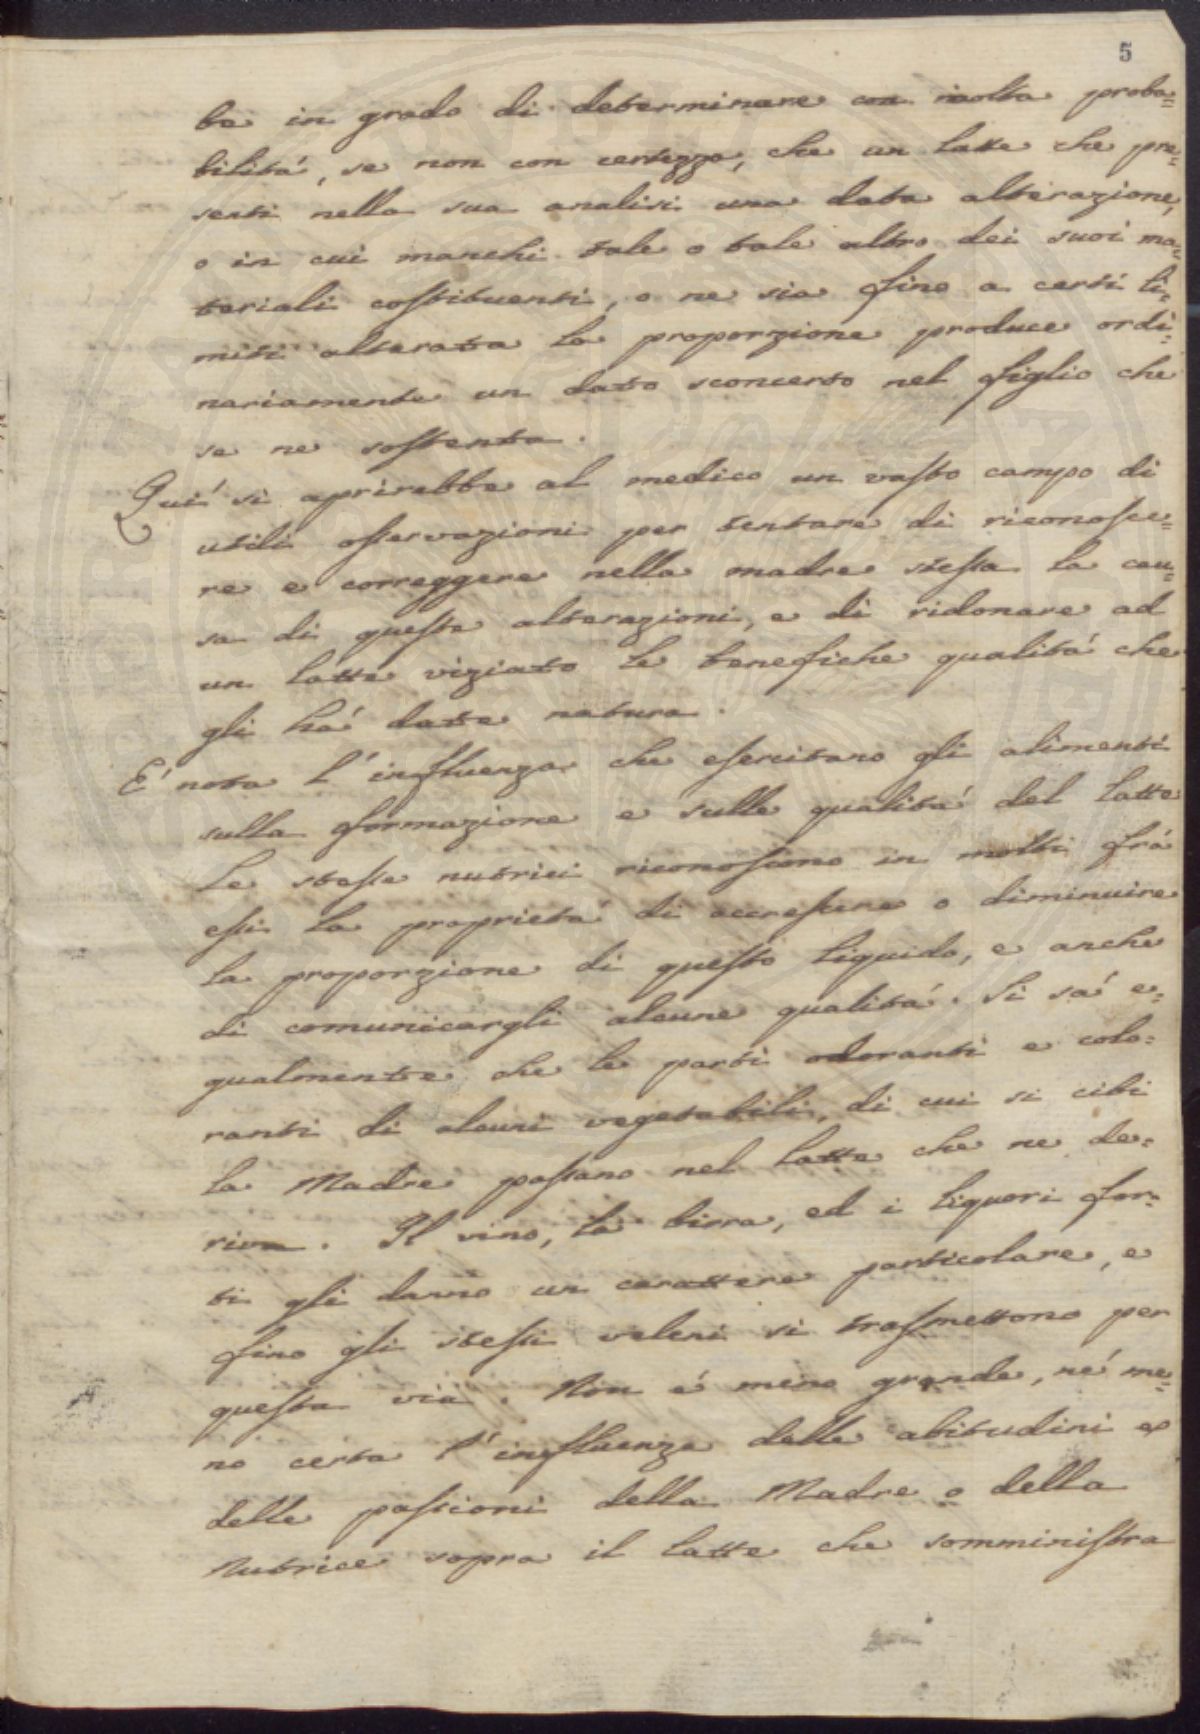 5
be in grado di determinare con molta proba=
bilitá, se non con certezza, che un latte che pre=
senti nella sua analisi una data alterazione,
o in cui manchi tale o tale altro dei suoi ma=
teriali costituenti, o ne sia fino a certi li=
miti alterata la proporzione produce ordi=
nariamente un dato sconcerto nel figlio che
se ne sostenta.
Quí si aprirebbe al medico un vasto campo di
utili osservazioni per tentare di riconosce=
re e correggere nella madre stessa la cau=
sa di queste alterazioni, e di ridonare ad
un latte viziato le benefiche qualitá che
gli há datte natura.
É nota l'influenza che esercitano gli alimenti
sulla formazione e sulle qualitá del latte
Le stesse nutrici riconoscono in molti frá
essi la proprietá di accrescere o diminuire
la proporzione di questo liquido, e anche
di comunicargli alcune qualitá. Si sá e=
gualmente che le parti odoranti e colo=
ranti di alcuni vegetabili, di cui si cibi
la Madre passano nel latte che ne de=
riva. Il vino, la birra, ed i liquori for=
ti gli danno un carattere particolare, e
fino gli stessi veleni si trasmettono per
questa via. Non é meno grande, né me=
no certa l'influenza delle abitudini e
delle passioni della Madre o della
Nutrice sopra il latte che somministra